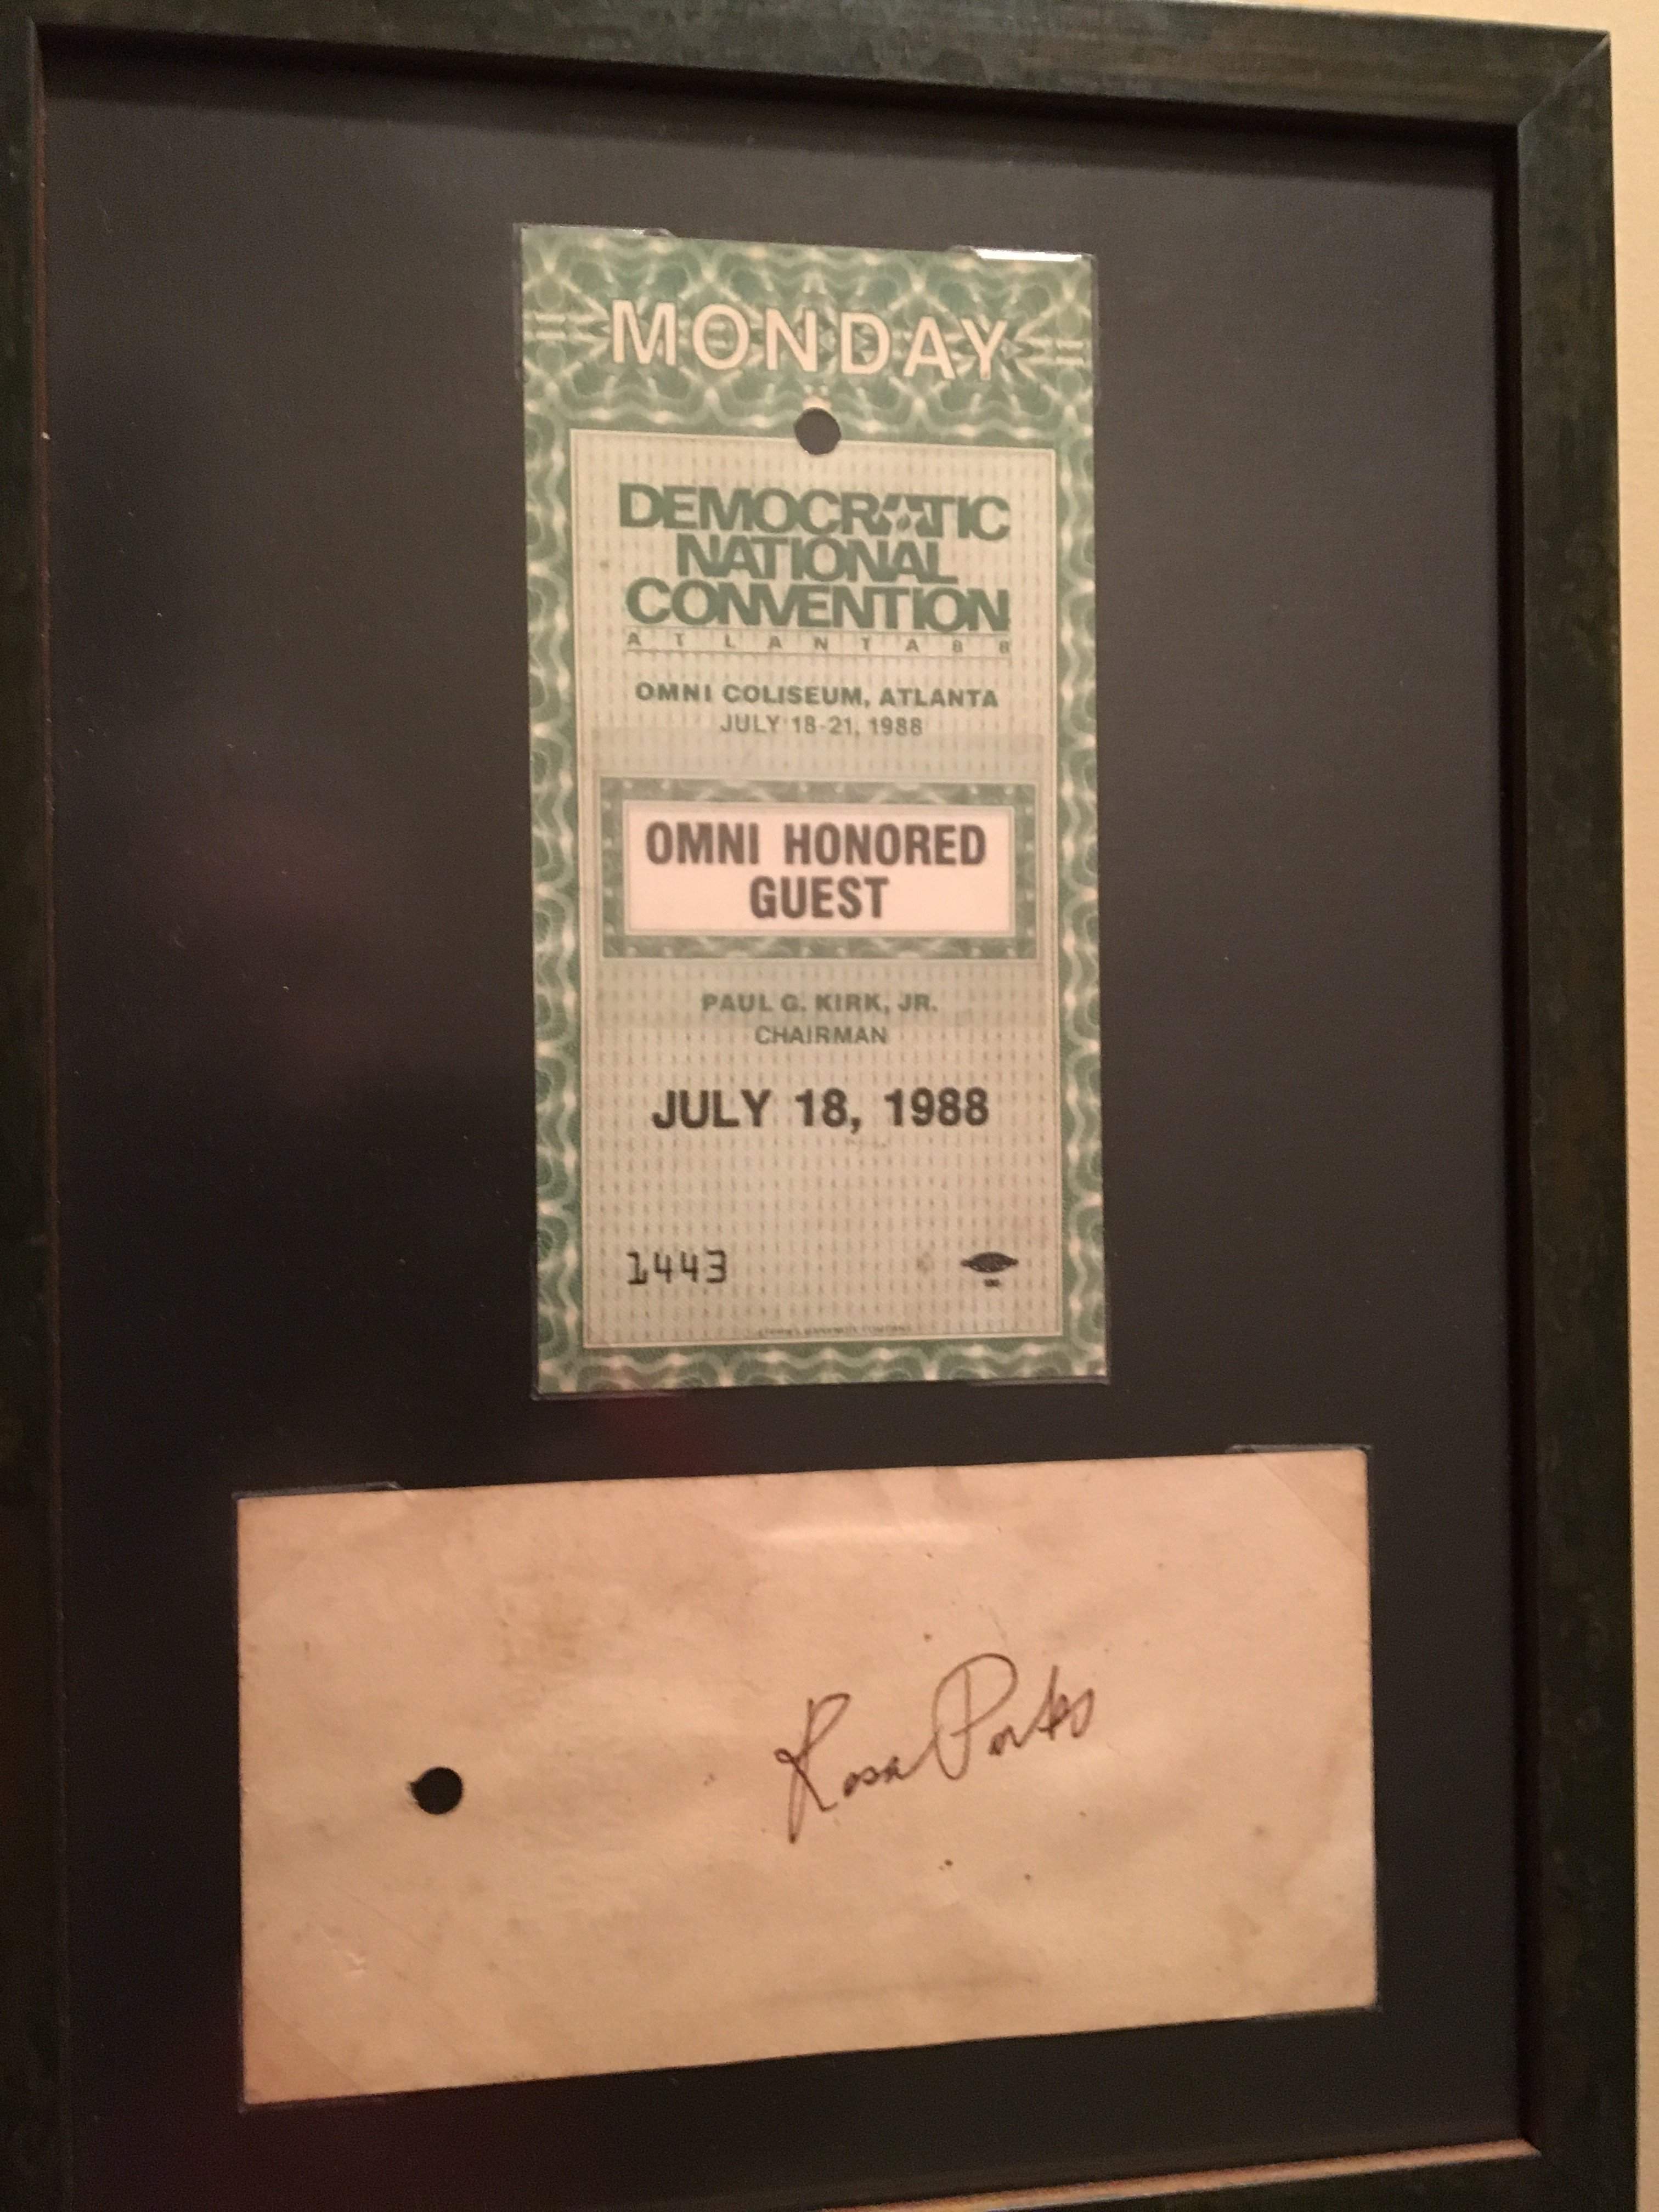 MONDAY
DEMOCRATIC
NATIONAL
CONVENTION
ATLANTA 88
OMNI COLISEUM, ATLANTA
JULY 18-21, 1988
OMNI HONORED
GUEST
PAUL G. KIRK, JR.
CHAIRMAN
JULY 18, 1988
1443
Rosa Parks